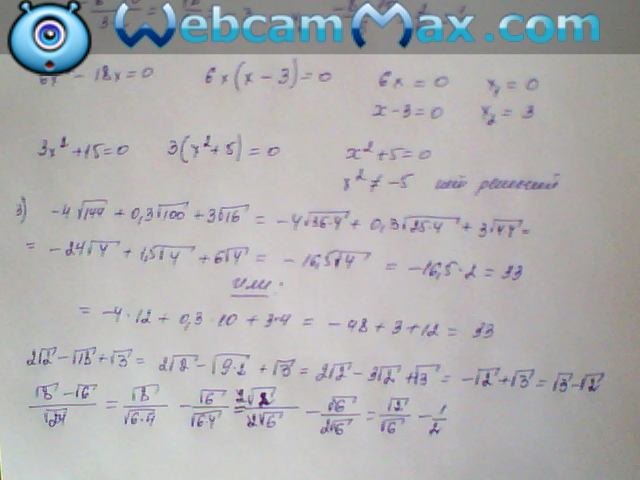 WebcamMax.com
6x² - 18x = 0 6x(x - 3) = 0 6x = 0 x₁ = 0
x - 3 = 0 x₂ = 3
3x² + 15 = 0 3(x² + 5) = 0 x² + 5 = 0
x² ≠ -5 нет решений
3) -4√144 + 0,3√100 + 3√16 = -4√36·4 + 0,3√25·4 + 3√4·4 =
= -24√4 + 1,5√4 + 6√4 = -16,5√4 = -16,5·2 = 33
или:
= -4·12 + 0,3·10 + 3·4 = -48 + 3 + 12 = 33
2√2 - √18 + √3 = 2√2 - √9·2 + √3 = 2√2 - 3√2 + √3 = -√2 + √3 = √3 - √2
(√8 - √6)/√24 = √8/√6·4 - √6/√6·4 = 2√2/2√6 - √6/2√6 = √2/√6 - 1/2